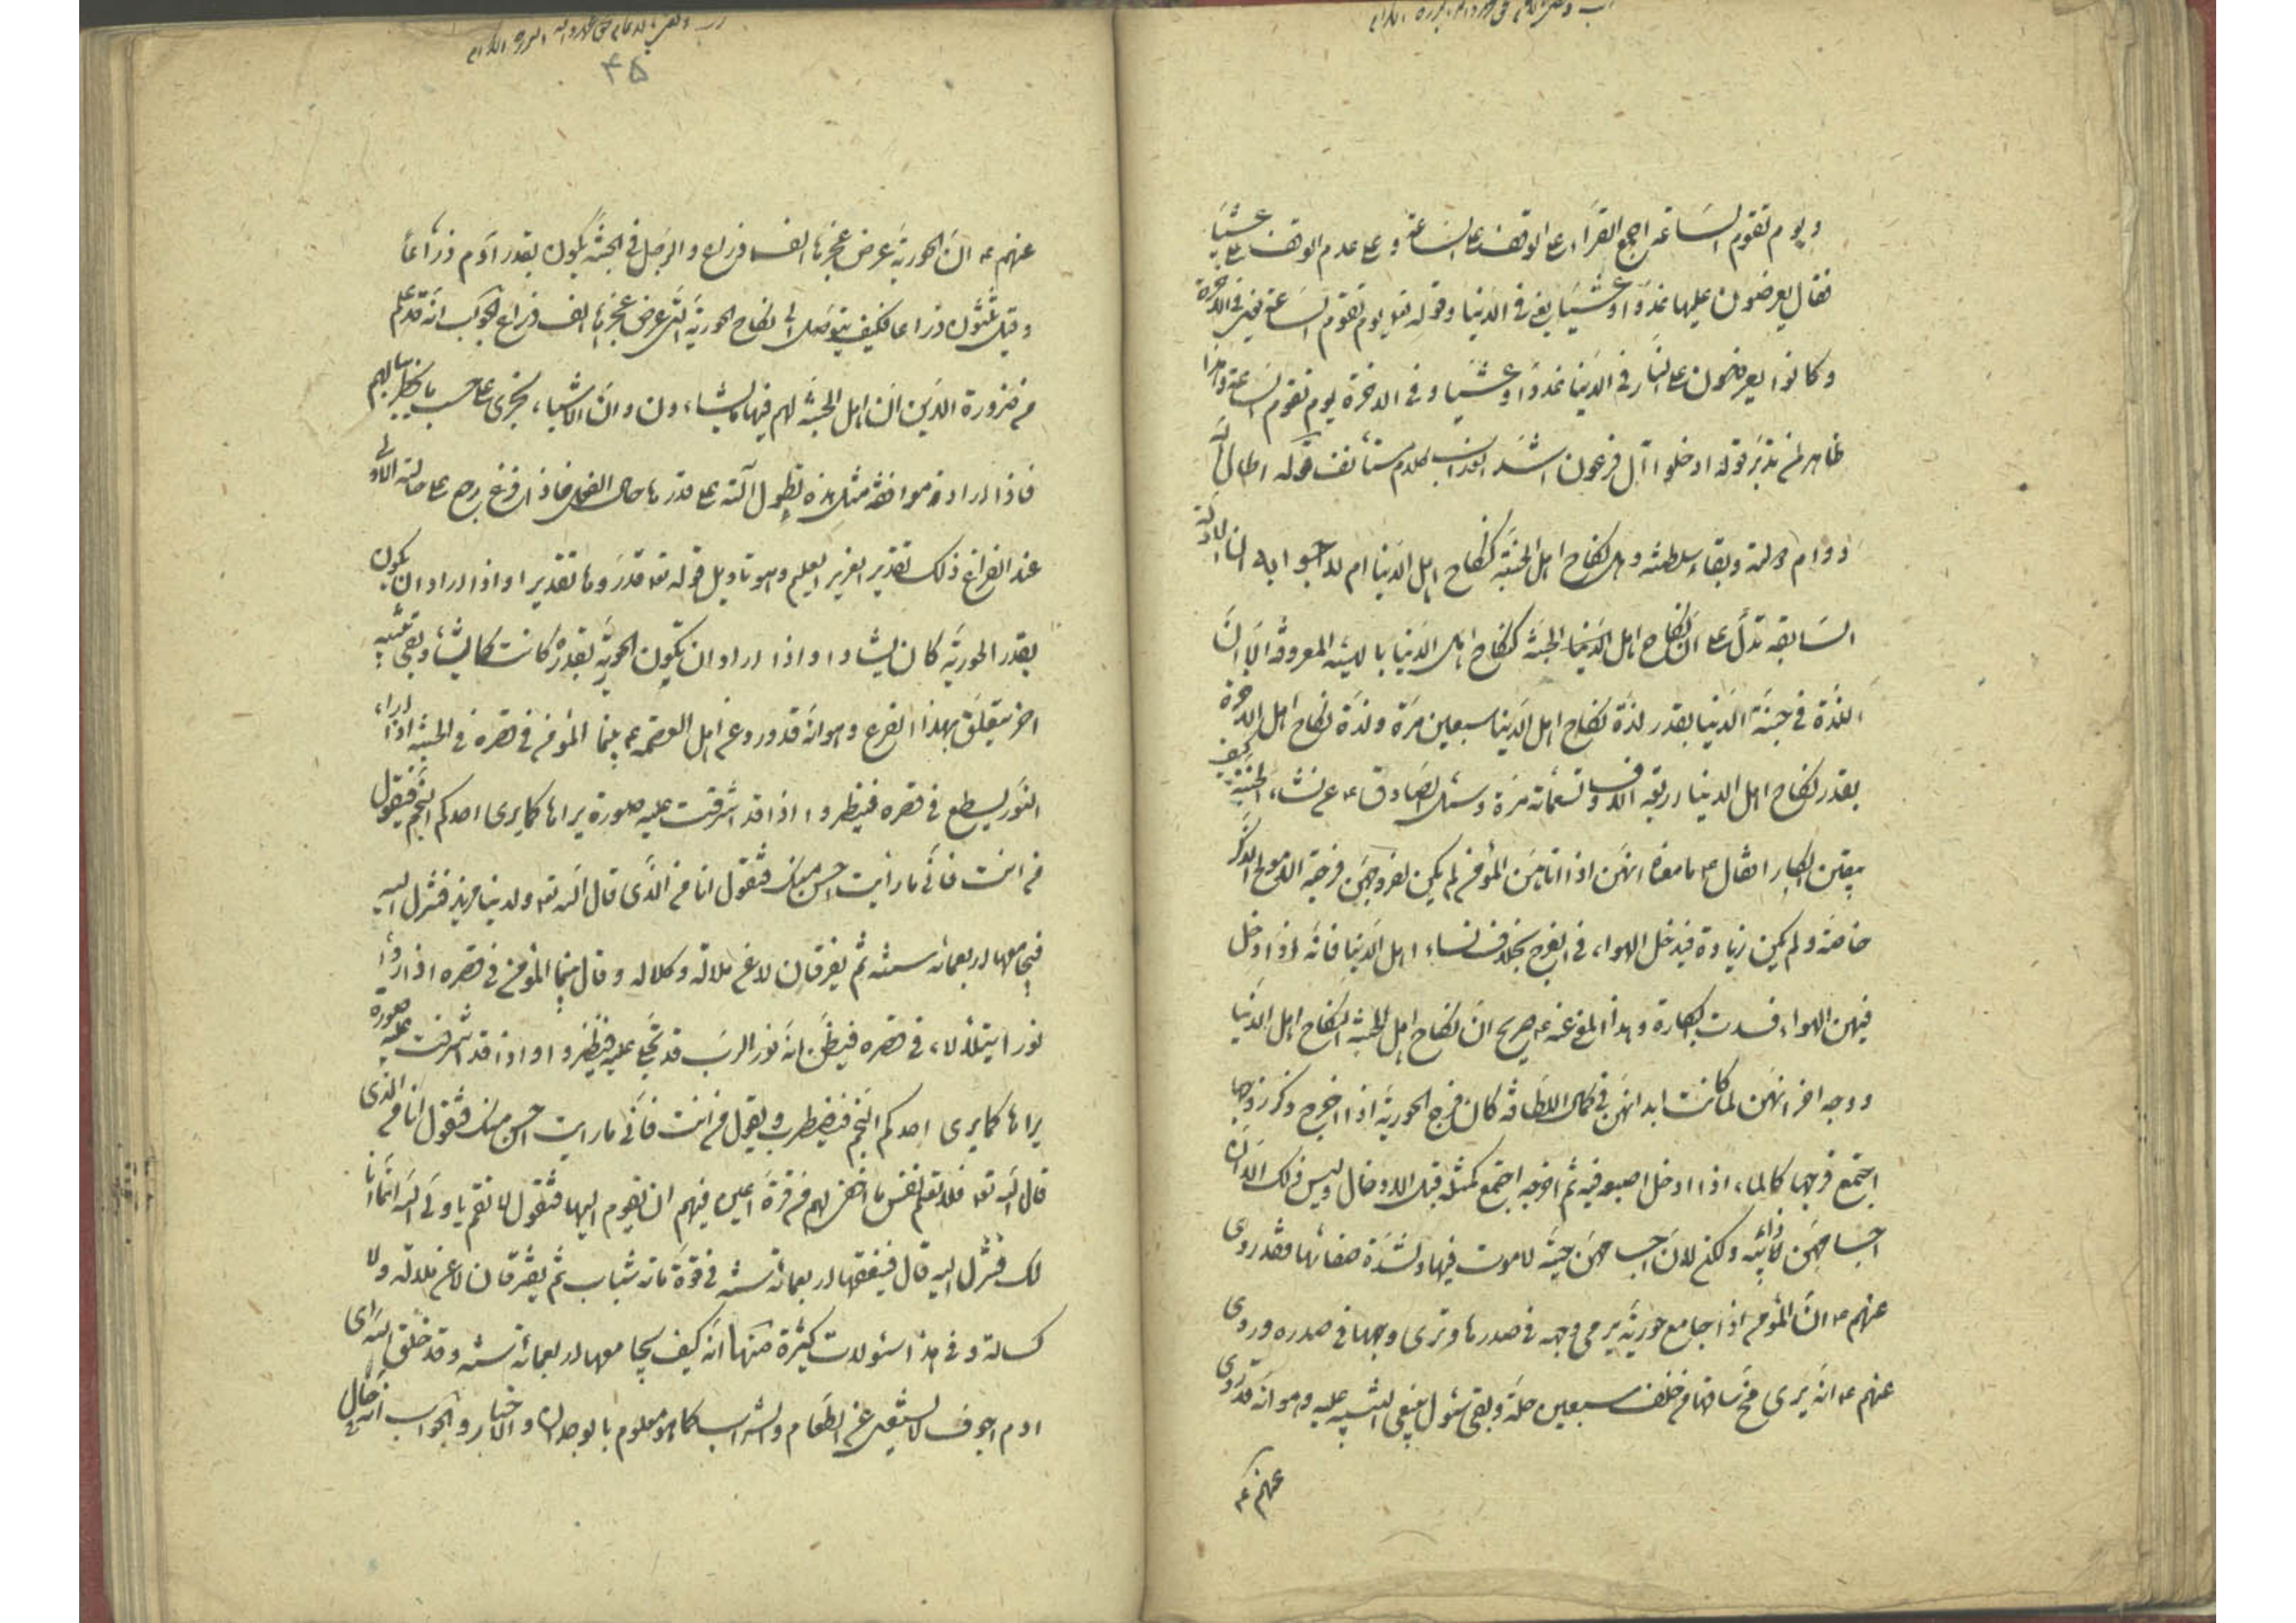 ويوم تقوم الساعة اجمع القراء على الوقف على الساعة وعلى عدم الوقف على عشيا
فقال يعرضون عليها غدوا وعشيا يعني في الدنيا وقوله تع ويوم تقوم الساعة يعني في الاخرة
وكانوا يعرضون على النار في الدنيا غدوا وعشيا وفي الاخرة يوم تقوم الساعة وهذا
ظاهر لمن تدبر قوله ادخلوا آل فرعون اشد العذاب كلام مستأنف قوله اطال الله
دوام دولته وبقاء سلطنته وهل نكاح اهل الجنة كنكاح اهل الدنيا ام لا جوابه ان الادلة
السابقة تدل على ان نكاح اهل الدنيا في الجنة كنكاح اهل الدنيا بالهيئة المعروفة الا ان
اللذة في جنة الدنيا بقدر لذة نكاح اهل الدنيا سبعين مرة ولذة نكاح اهل الاخرة
بقدر نكاح اهل الدنيا اربعة الاف وتسعمائة مرة وسئل الصادق ع عن نساء الجنة كيف
يبقين ابكارا فقال ع ما معناه انهن اذا اتاهن المؤمن لم يكن لفروجهن فرجة الا موضع الذكر
خاصة ولم يكن زيادة فيدخل الهواء في الفرج بخلاف نساء اهل الدنيا فانه اذا دخل
فيهن الهواء فسدت البكارة وهذا المعنى عنه ع صريح ان نكاح اهل الجنة كنكاح اهل الدنيا
ووجه اخر انهن لما كانت ابدانهن في كمال اللطافة كان فرج الحورية اذا اخرج ذكر زوجها
اجتمع فرجها كالماء اذا ادخل اصبعه فيه ثم اخرجه اجتمع كمثله قبل الادخال وليس ذلك لان
اجسامهن ذائبة ولكن لان اجسامهن حية لا موت فيها ولشدة صفائها فقد روي
عنهم ع ان المؤمن اذا جامع حورية يرى وجهه في صدرها وترى وجهها في صدره وروي
عنهم ع انه يرى مخ ساقها من خلف سبعين حلة وبقي سئول ينبغي التنبيه عليه وهو انه قد روي
عنهم ع
۴۵
عنهم ع ان الحورية عرض عجزها الف ذراع والرجل في الجنة يكون بقدر آدم ذراعا
وقيل ستون ذراعا فكيف يتوصل الى نكاح الحورية التي عرض عجزها الف ذراع والجواب انه قد علم
من ضرورة الدين ان اهل الجنة لهم فيها ما يشاءون وان الاشياء تجري على حسب ما يخطر ببالهم
فاذا اراد موافقة مثل هذه تطول آلته على قدر ما حال الفعل فاذا فرغ رجع على حالته الاولى
عند الفراغ ذلك تقدير العزيز العليم وهو تاويل قوله تع قدروها تقديرا واذا اراد ان يكون
بقدر الحورية كان يشاء واذا اراد ان تكون الحورية بقدره كانت كما يشاء وبقي تنبيه
اخر يتعلق بهذا الفرع وهو انه قد ورد عن اهل العصمة ع بينما المؤمن في قصره في الجنة اذا راى
النور يسطع في قصره فينظر واذا قد اشرقت عليه صورة يراها كما يرى احدكم النجم فيقول
من انت فاني ما رأيت احسن منك فتقول انا من الذي قال الله تع ولدينا مزيد فتنزل اليه
فيجامعها اربعمائة سنة ثم يفترقان لا عن ملالة وكلالة وقال بينما المؤمن في قصره اذا راى
نورا يتلألأ في قصره فيظن انه نور الرب قد تجلى عليه فينظر واذا قد اشرفت عليه صورة
يراها كما يرى احدكم النجم فيضطرب ويقول من انت فاني ما رايت احسن منك فتقول انا من الذي
قال الله تع فلا تعلم نفس ما اخفي لهم من قرة اعين فيهم ان يقوم اليها فتقول لا تقم يا ولي الله انما انا
لك فتنزل اليه قال فيعتنقها اربعمائة سنة في قوة مائة شباب ثم يفترقان لا عن ملالة ولا
كسالة وفي هذا سئولات كثيرة منها انه كيف يجامعها اربعمائة سنة وقد خلق الله ابن
ادم اجوف لا يستغني عن الطعام والشراب كما هو معلوم بالوجدان والاخبار والجواب انه قال